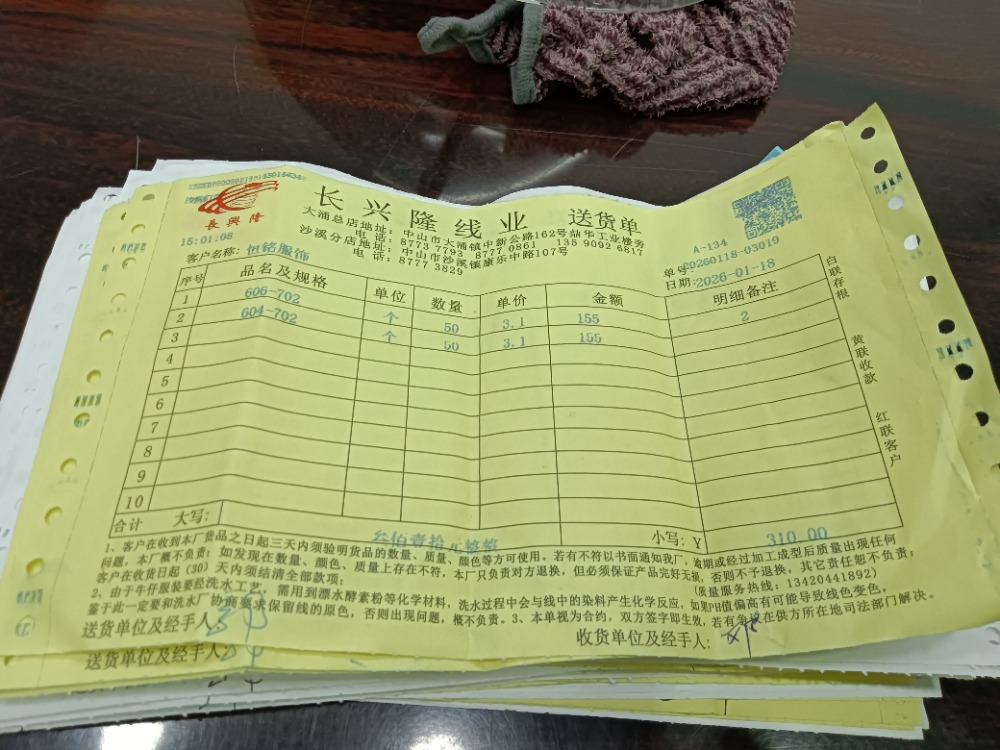 長興隆
长兴隆线业 送货单
大涌总店地址: 中山市大涌镇中新公路162号鼎华工业楼旁
电话: 8773 7793 8777 0861 138 9092 6817
沙溪分店地址: 中山市沙溪镇康乐中路107号
电话: 8777 3829
15:01:08
A-134
客户名称: 恒铭服饰
单号: C0260118-03019
日期: 2026-01-18
序号 品名及规格 单位 数量 单价 金额 明细备注
1 606-702 个 50 3.1 155 2
2 604-702 个 50 3.1 155
3
4
5
6
7
8
9
10
合计 大写: 叁佰壹拾元整 小写: Y 310.00
白联存根
黄联收款
红联客户
1、客户在收到本厂货品之日起三天内须验明货品的数量、质量、颜色等方可使用。若有不符以书面通知我厂,逾期或经过加工成型后质量出现任何
问题,本厂概不负责; 如发现在数量、颜色、质量上存在不符,本厂只负责对方退换,但必须保证产品完好无损,否则不予退换,其它责任恕不负责;
客户在收货日起(30)天内须结清全部款项; (质量服务热线: 13420441892)
2、由于牛仔服装要经洗水工艺, 需用到漂水酵素粉等化学材料, 洗水过程中会与线中的染料产生化学反应, 如果PH值偏高有可能导致线色变色,
鉴于此一定要和洗水厂协商要求保留线的原色, 否则出现问题, 概不负责。3、本单视为合约, 双方签字即生效, 若有争议在供方所在地司法部门解决。
送货单位及经手人: 收货单位及经手人:
送货单位及经手人: